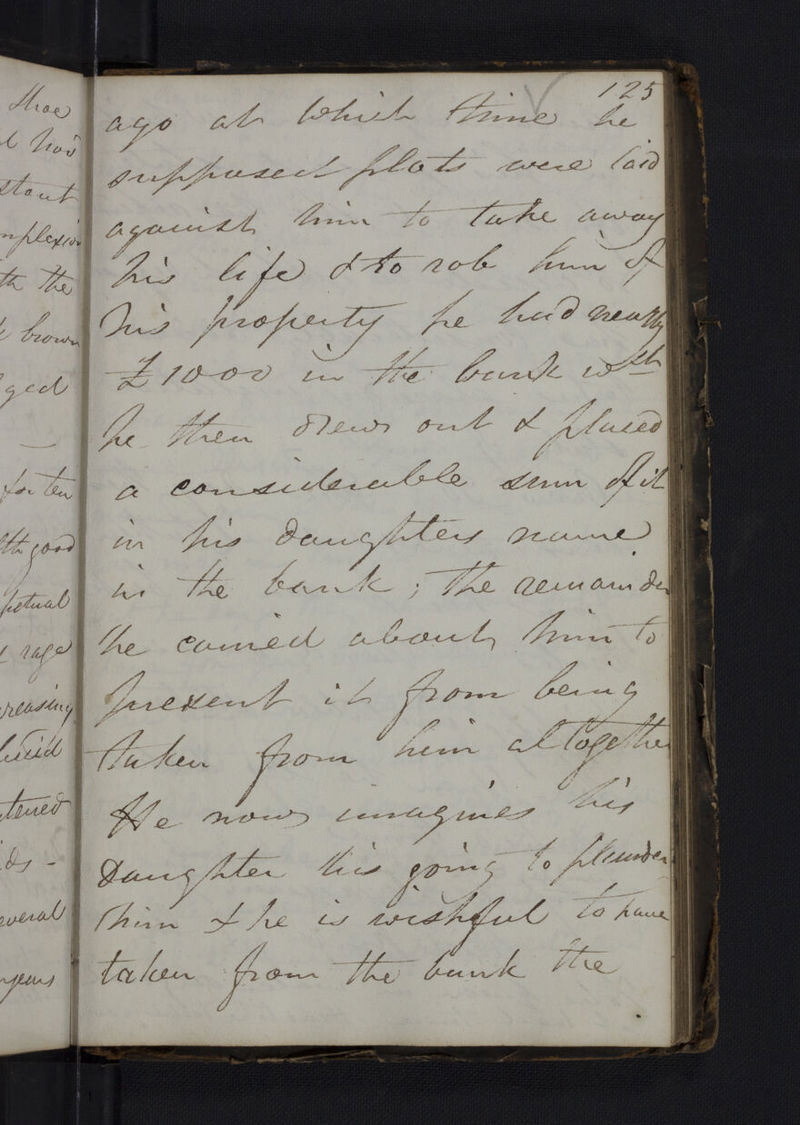 125
ago at which time he
supposed plots were laid
against him to take away
his life & to rob him of
his property he had nearly
£1000 in the bank wch
he then drew out & placed
a considerable sum of it
in his daughters name
in the bank; the remainder
he carried about him to
prevent it from being
taken from him altogether
He now imagines his
Daughter this going to plunder
him & he is wishful to have
taken from the bank the
the
brown
aged
for ten
good
rage
lucid
several
years